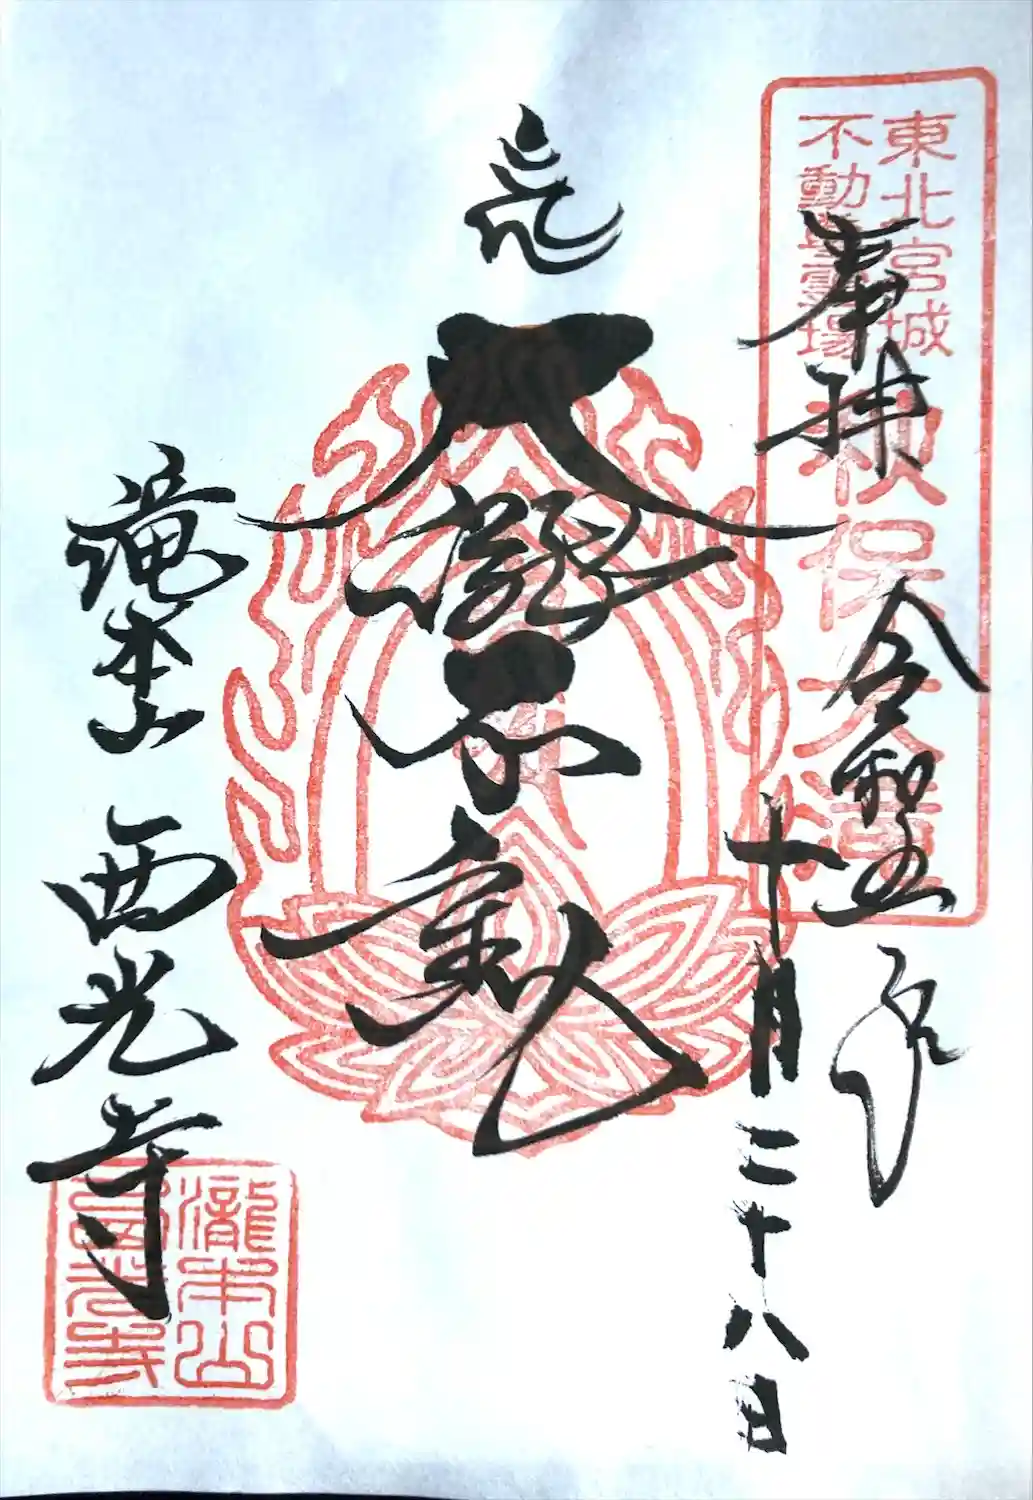 東北宮城
不動尊霊場
秋保大滝
奉拝
令和元年
十月二十八日
大瀧不動
滝本山 西光寺
瀧本山
西光寺